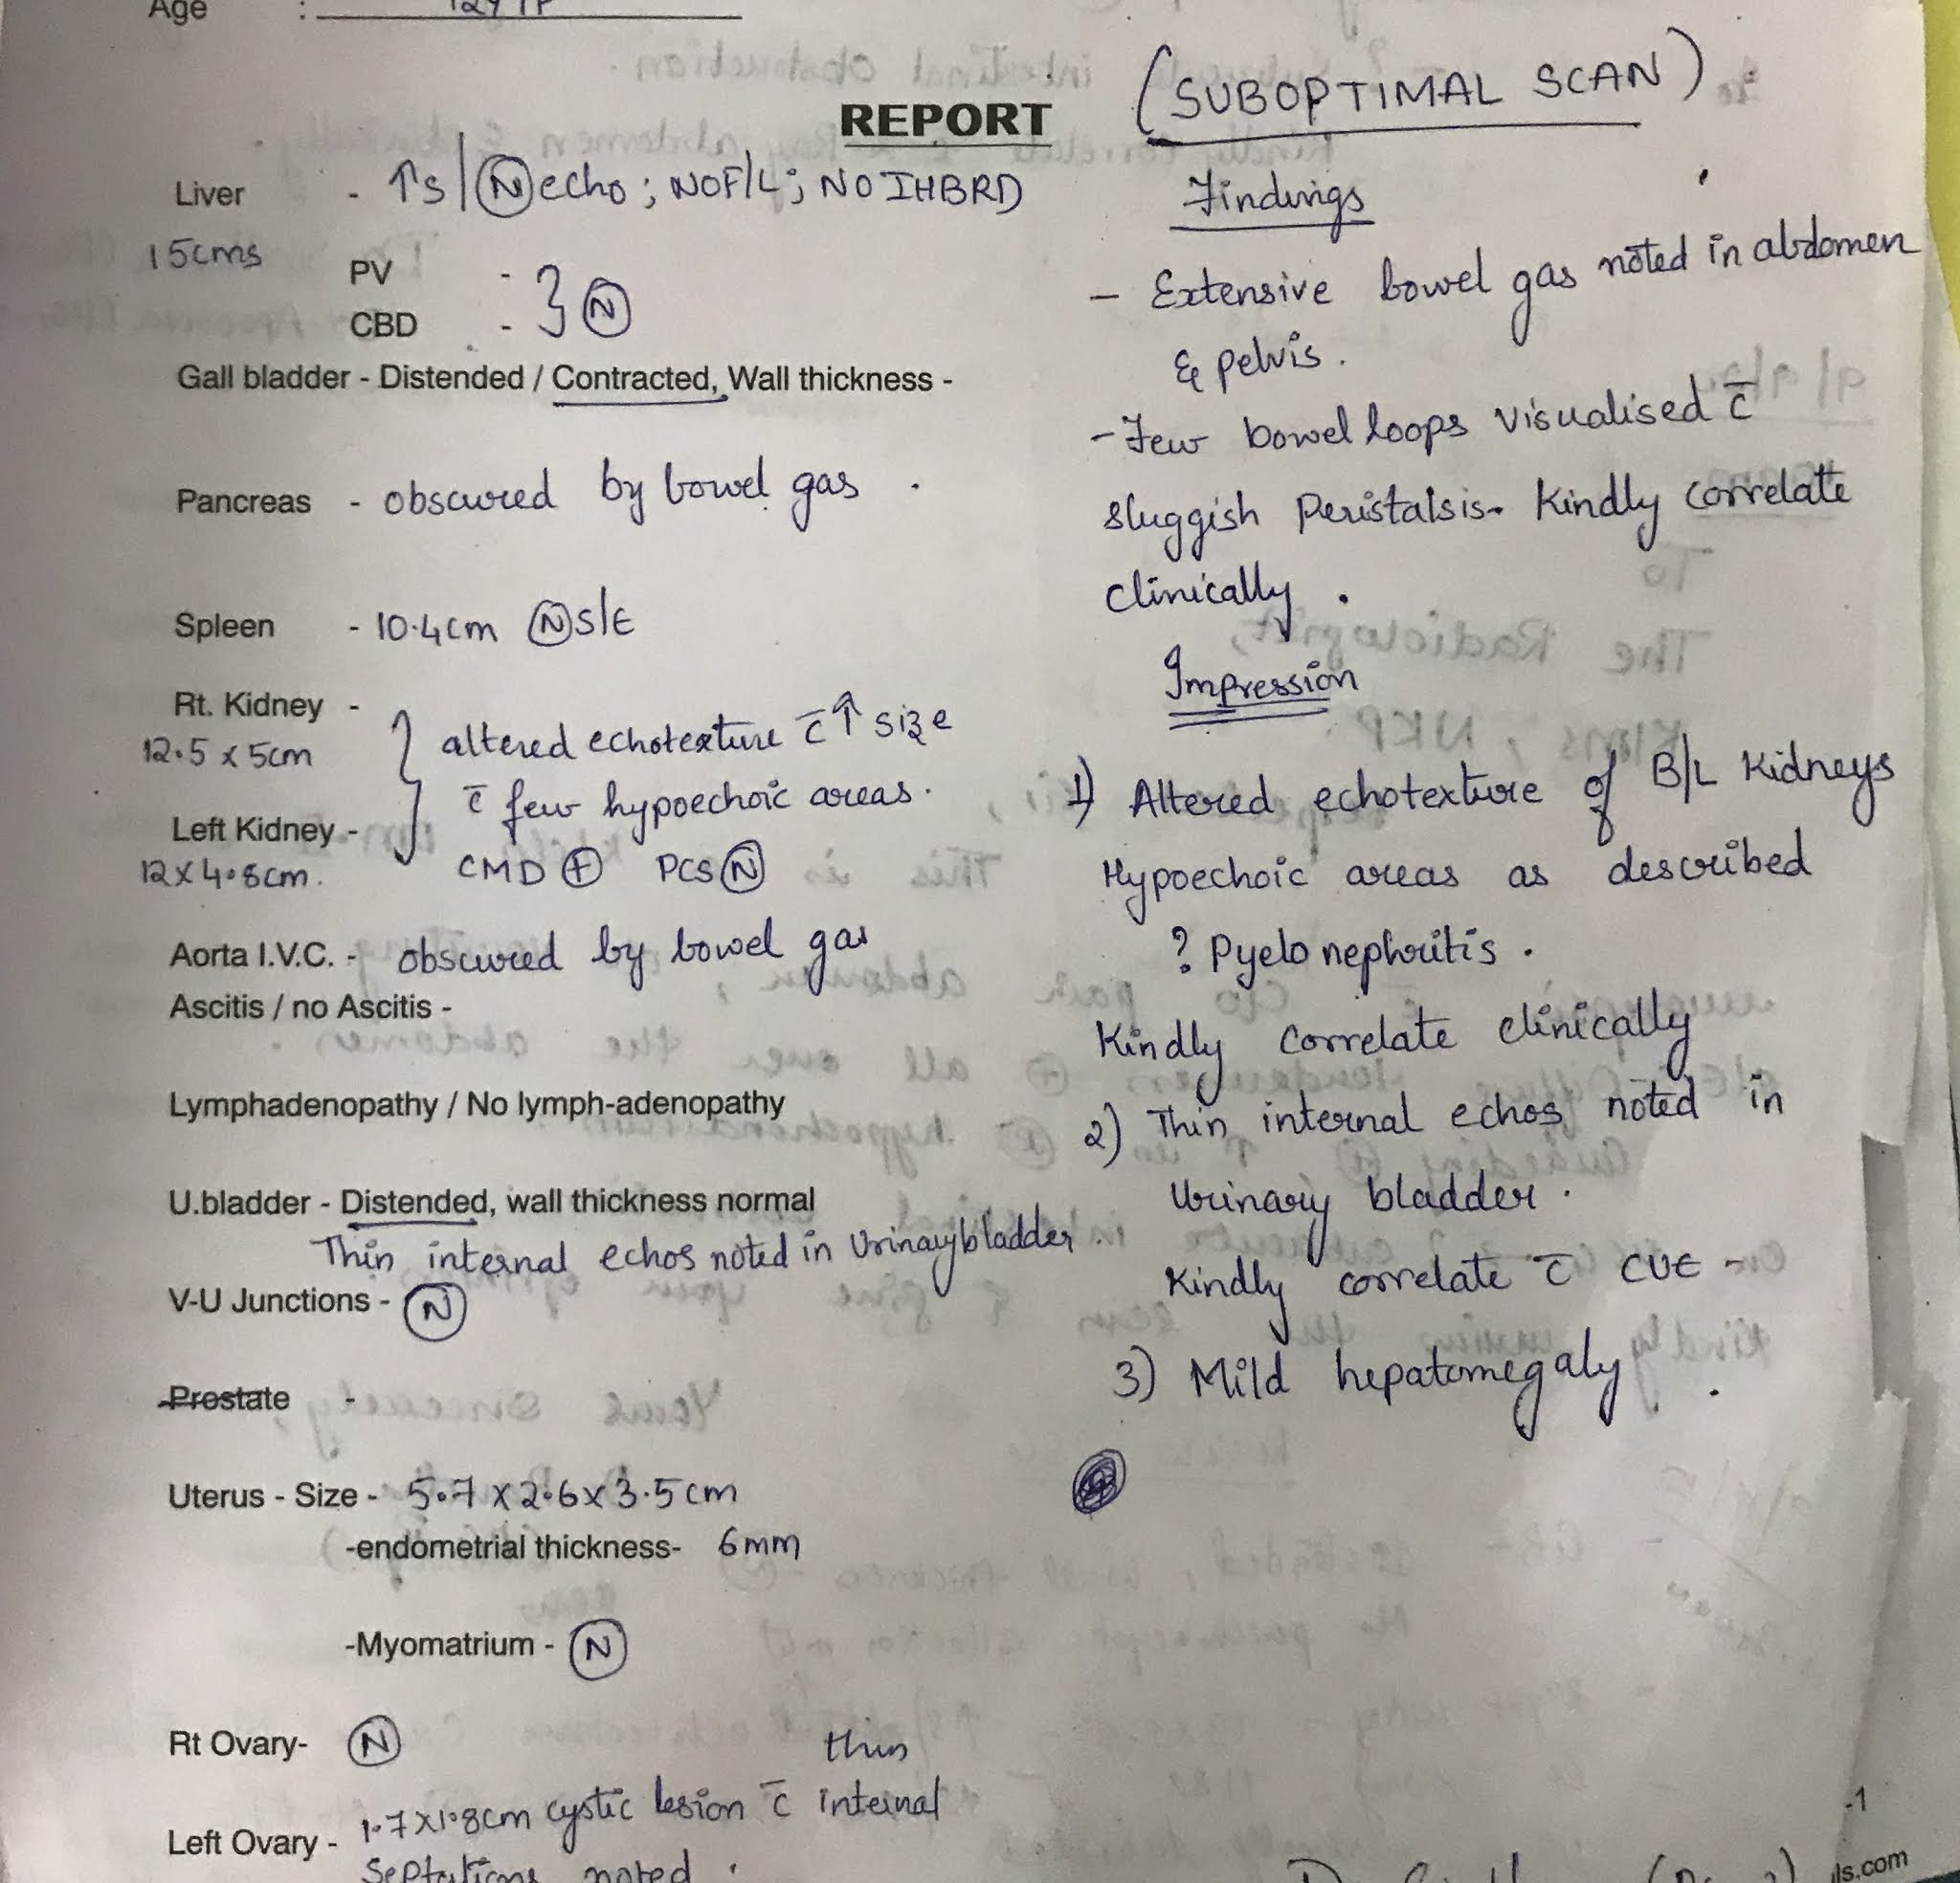 Age :
REPORT
Liver - ↑s/Ⓝ echo ; NO F/L ; NO IHBRD
15cms
PV -
CBD - } Ⓝ
Gall bladder - Distended / Contracted, Wall thickness -
Pancreas - obscured by bowel gas .
Spleen - 10.4cm Ⓝ S/E
Rt. Kidney -
12.5 x 5cm
} altered echotexture c̄ ↑ size
c̄ few hypoechoic areas.
Left Kidney -
12 x 4.8cm.
CMD ⊕ PCS Ⓝ
Aorta I.V.C. - obscured by bowel gas
Ascitis / no Ascitis -
Lymphadenopathy / No lymph-adenopathy
U.bladder - Distended, wall thickness normal
Thin internal echos noted in Urinary bladder .
V-U Junctions - Ⓝ
Prostate -
Uterus - Size - 5.7 x 2.6 x 3.5 cm
-endometrial thickness- 6mm
-Myomatrium - Ⓝ
Rt Ovary- Ⓝ
thin
Left Ovary - 1.7x1.8cm cystic lesion c̄ internal
Septations noted .
(SUBOPTIMAL SCAN)
Findings
- Extensive bowel gas noted in abdomen
& pelvis .
- Few bowel loops visualised c̄
sluggish Peristalsis- Kindly correlate
clinically .
Impression
1) Altered echotexture of B/L Kidneys
Hypoechoic areas as described
? Pyelo nephritis .
Kindly correlate clinically
2) Thin internal echos noted in
Urinary bladder .
Kindly correlate c̄ CUE -
3) Mild hepatomegaly .
-1
ls.com